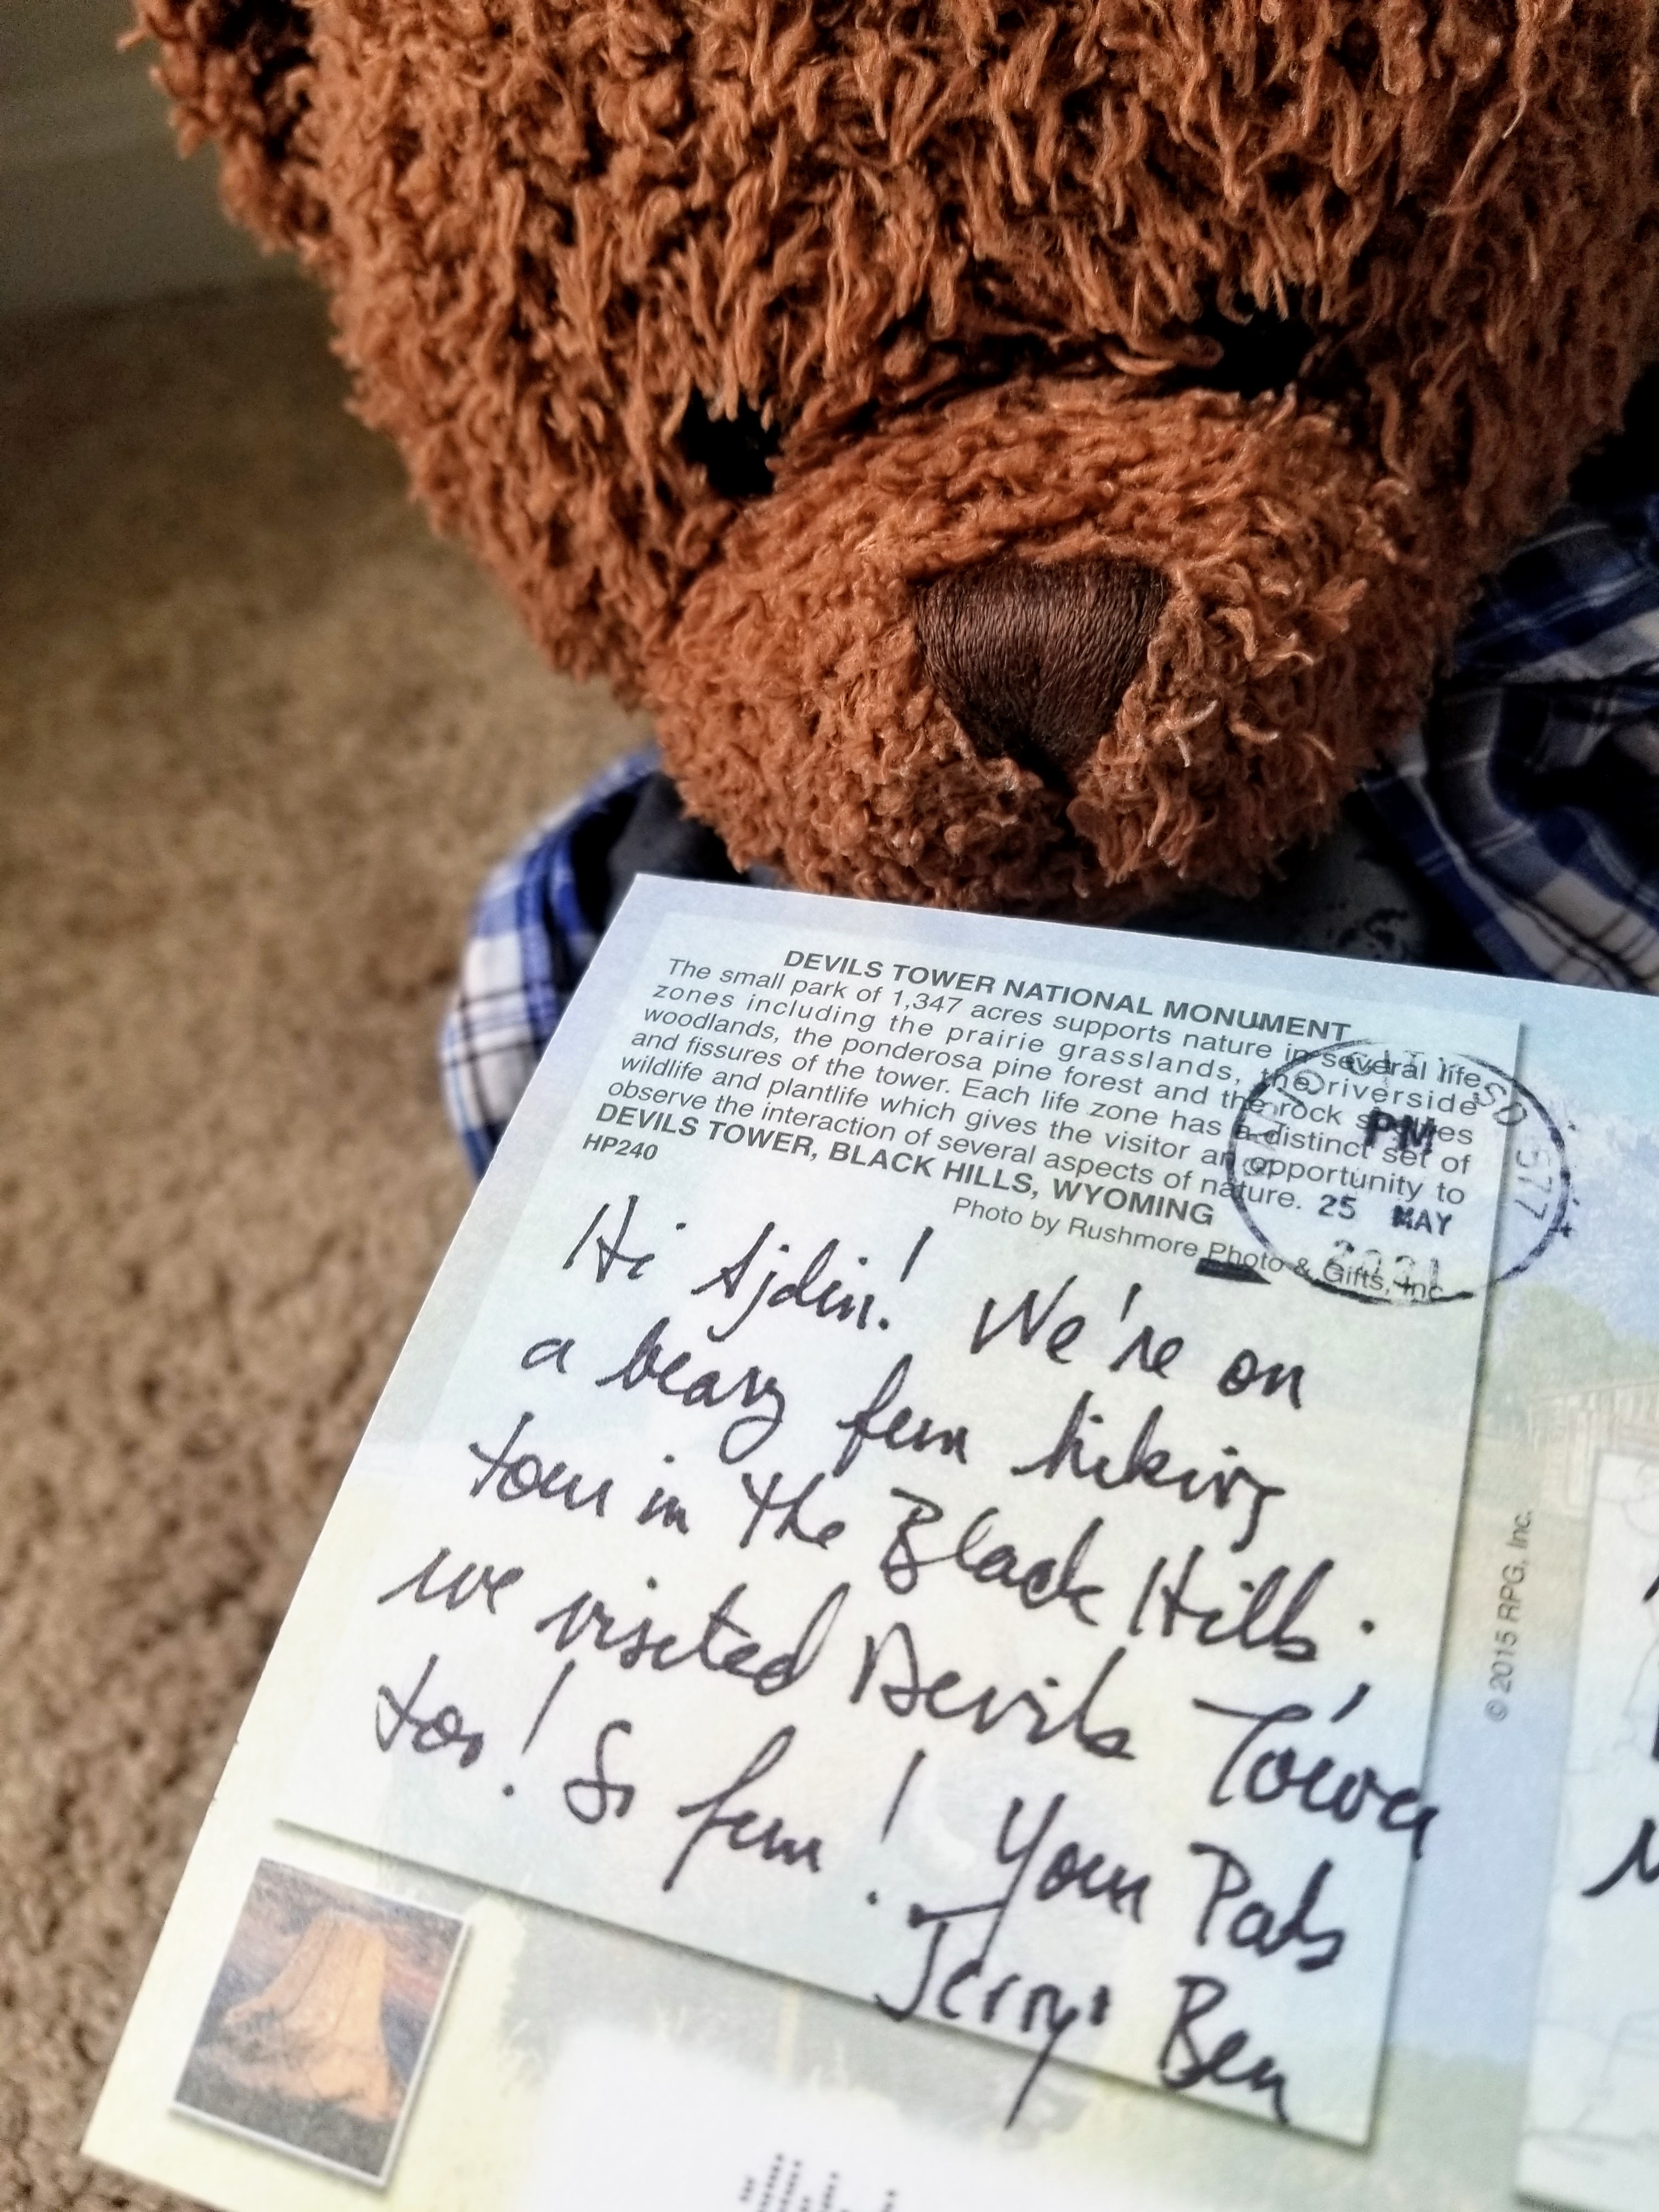 DEVILS TOWER NATIONAL MONUMENT
The small park of 1,347 acres supports nature in several life
zones including the prairie grasslands, the riverside
woodlands, the ponderosa pine forest and the rock spires
and fissures of the tower. Each life zone has a distinct set of
wildlife and plantlife which gives the visitor an opportunity to
observe the interaction of several aspects of nature.
DEVILS TOWER, BLACK HILLS, WYOMING
HP240
Photo by Rushmore Photo & Gifts, Inc.
RAPID CITY SD 577
PM
25 MAY
2021
Hi Ajdin! We're on
a beary fun hiking
tour in the Black Hills;
we visited Devils Tower
too! So fun! Your Pals
Jerry & Ben
© 2015 RPG, Inc.